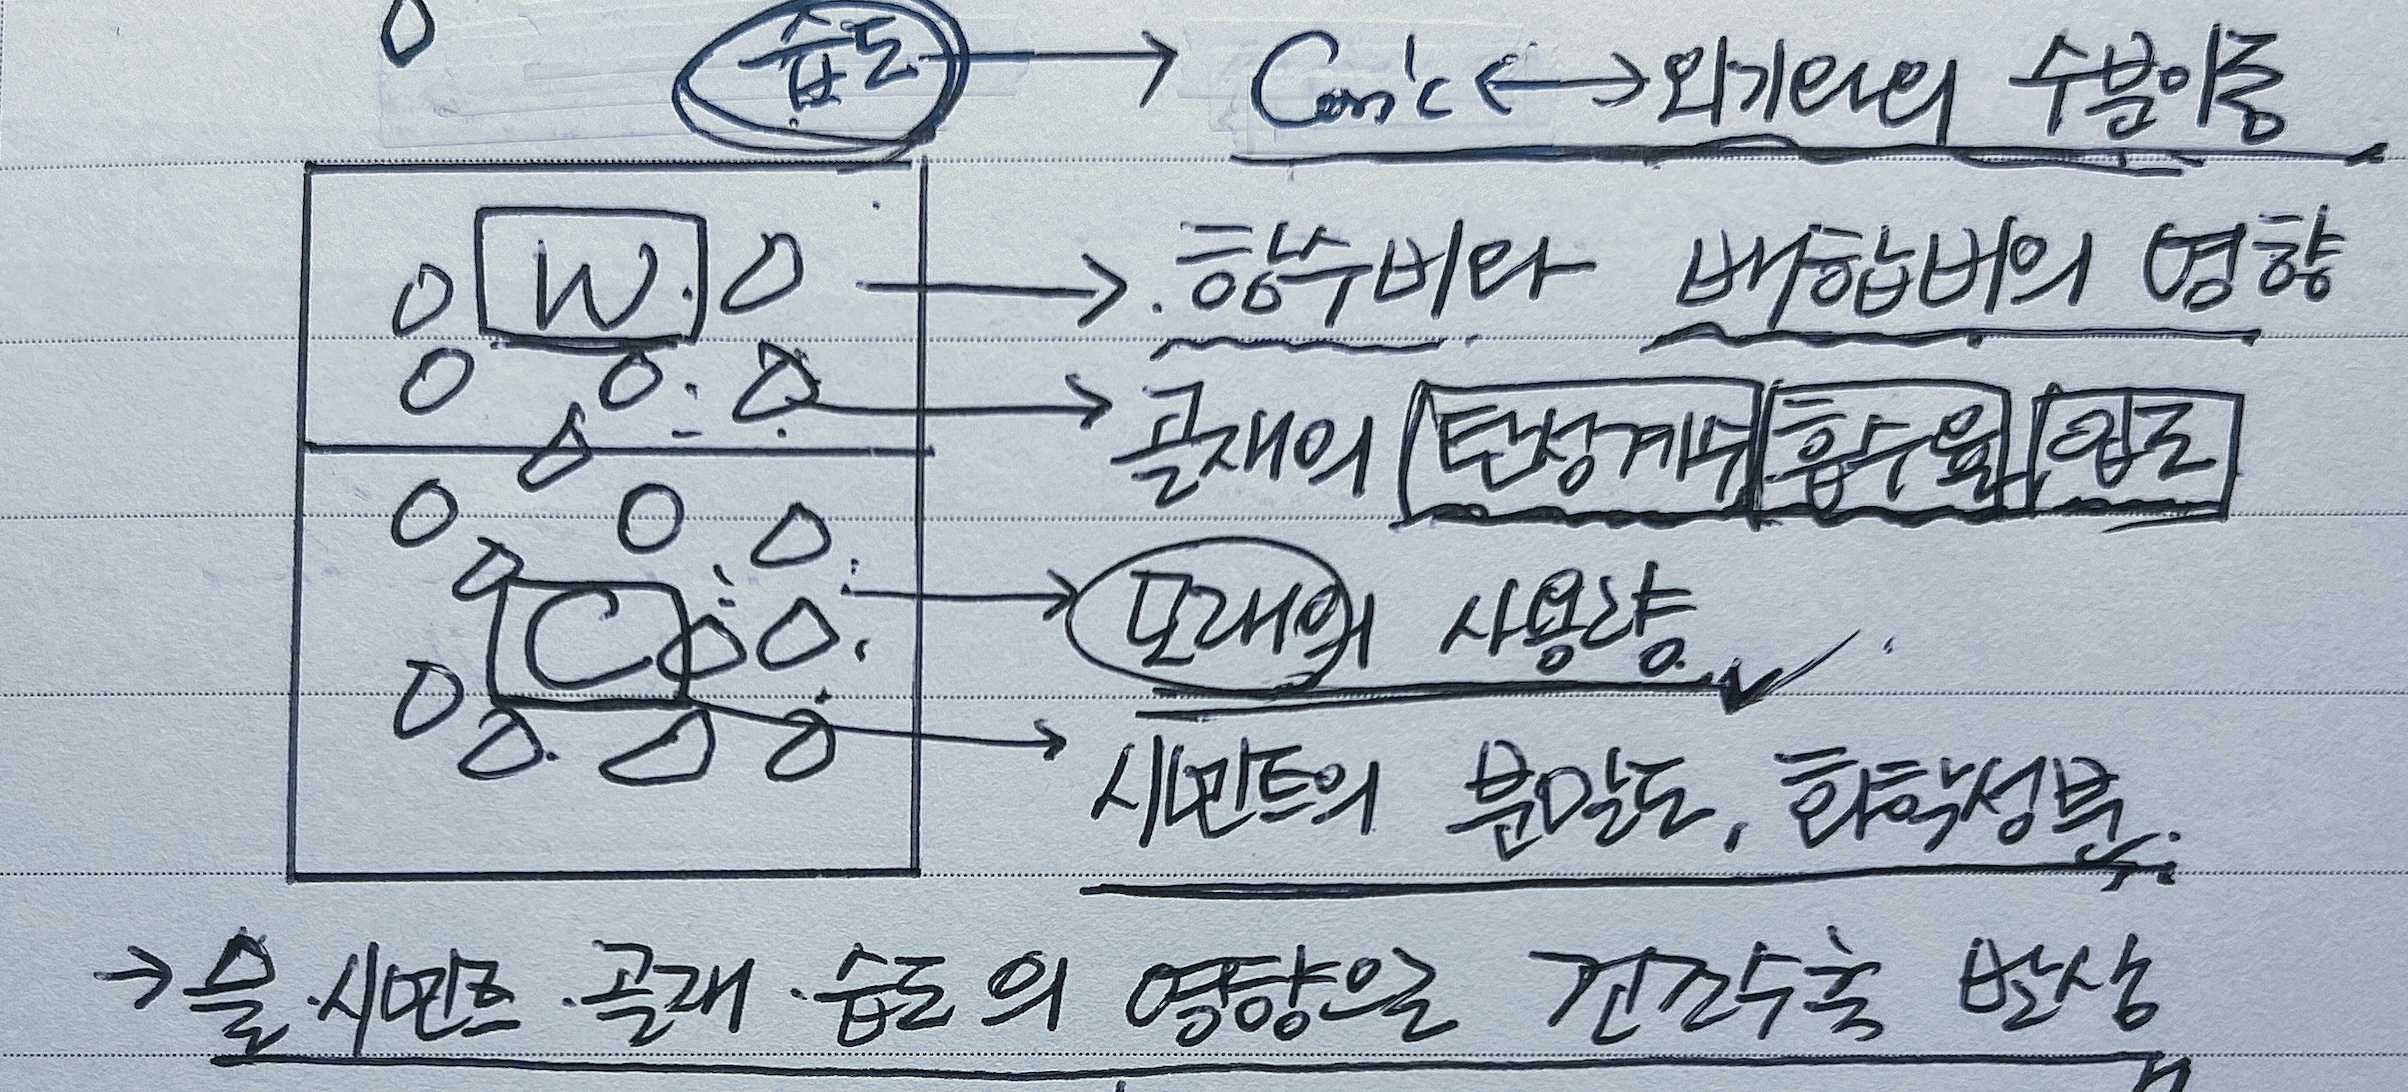 습도 → Con'c ↔ 외기와의 수분이동
W → 함수비와 배합비의 영향
→ 골재의 탄성계수 흡수율 입도
→ 모래의 사용량
C → 시멘트의 분말도, 화학성분.
→ 물·시멘트·골재·습도의 영향으로 건조수축 발생